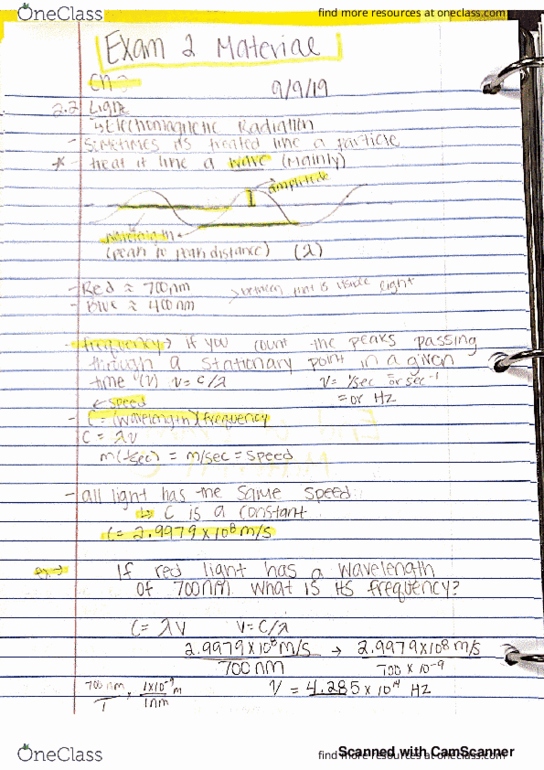 OneClass
find more resources at oneclass.com
Exam 2 Material
Ch 2
9/9/19
2.2 Light
↳ Electromagnetic Radiation
- sometimes is treated like a particle
* - treat it like a wave (mainly)
amplitude
wavelength
(peak to peak distance) (λ)
- Red ≈ 700nm
> between that is visible light
- Blue ≈ 400nm
- frequency → if you count the peaks passing
through a stationary point in a given
time (ν) ν = c/λ ν = 1/sec or sec⁻¹
= or Hz
← speed
- C = (wavelength)(frequency)
C = λν
m(1/sec) = m/sec = speed
- all light has the same speed
↳ C is a constant
C = 2.9979 x 10⁸ m/s
ex → If red light has a wavelength
of 700nm what is its frequency?
C = λν ν = C/λ
2.9979 x 10⁸ m/s → 2.9979 x 10⁸ m/s
700nm 700 x 10⁻⁹
700nm . 1x10⁻⁹m ν = 4.285 x 10¹⁴ Hz
1 1nm
OneClass
find more resources at oneclass.com
Scanned with CamScanner